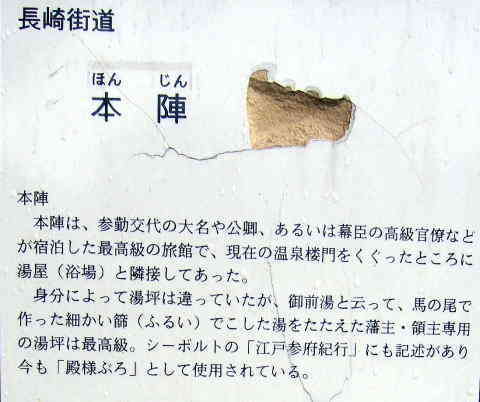 長崎街道
ほん じん
本 陣
本陣
本陣は、参勤交代の大名や公卿、あるいは幕臣の高級官僚など
が宿泊した最高級の旅館で、現在の温泉楼門をくぐったところに
湯屋（浴場）と隣接してあった。
身分によって湯坪は違っていたが、御前湯と云って、馬の尾で
作った細かい篩（ふるい）でこした湯をたたえた藩主・領主専用
の湯坪は最高級。シーボルトの「江戸参府紀行」にも記述があり
今も「殿様ぶろ」として使用されている。